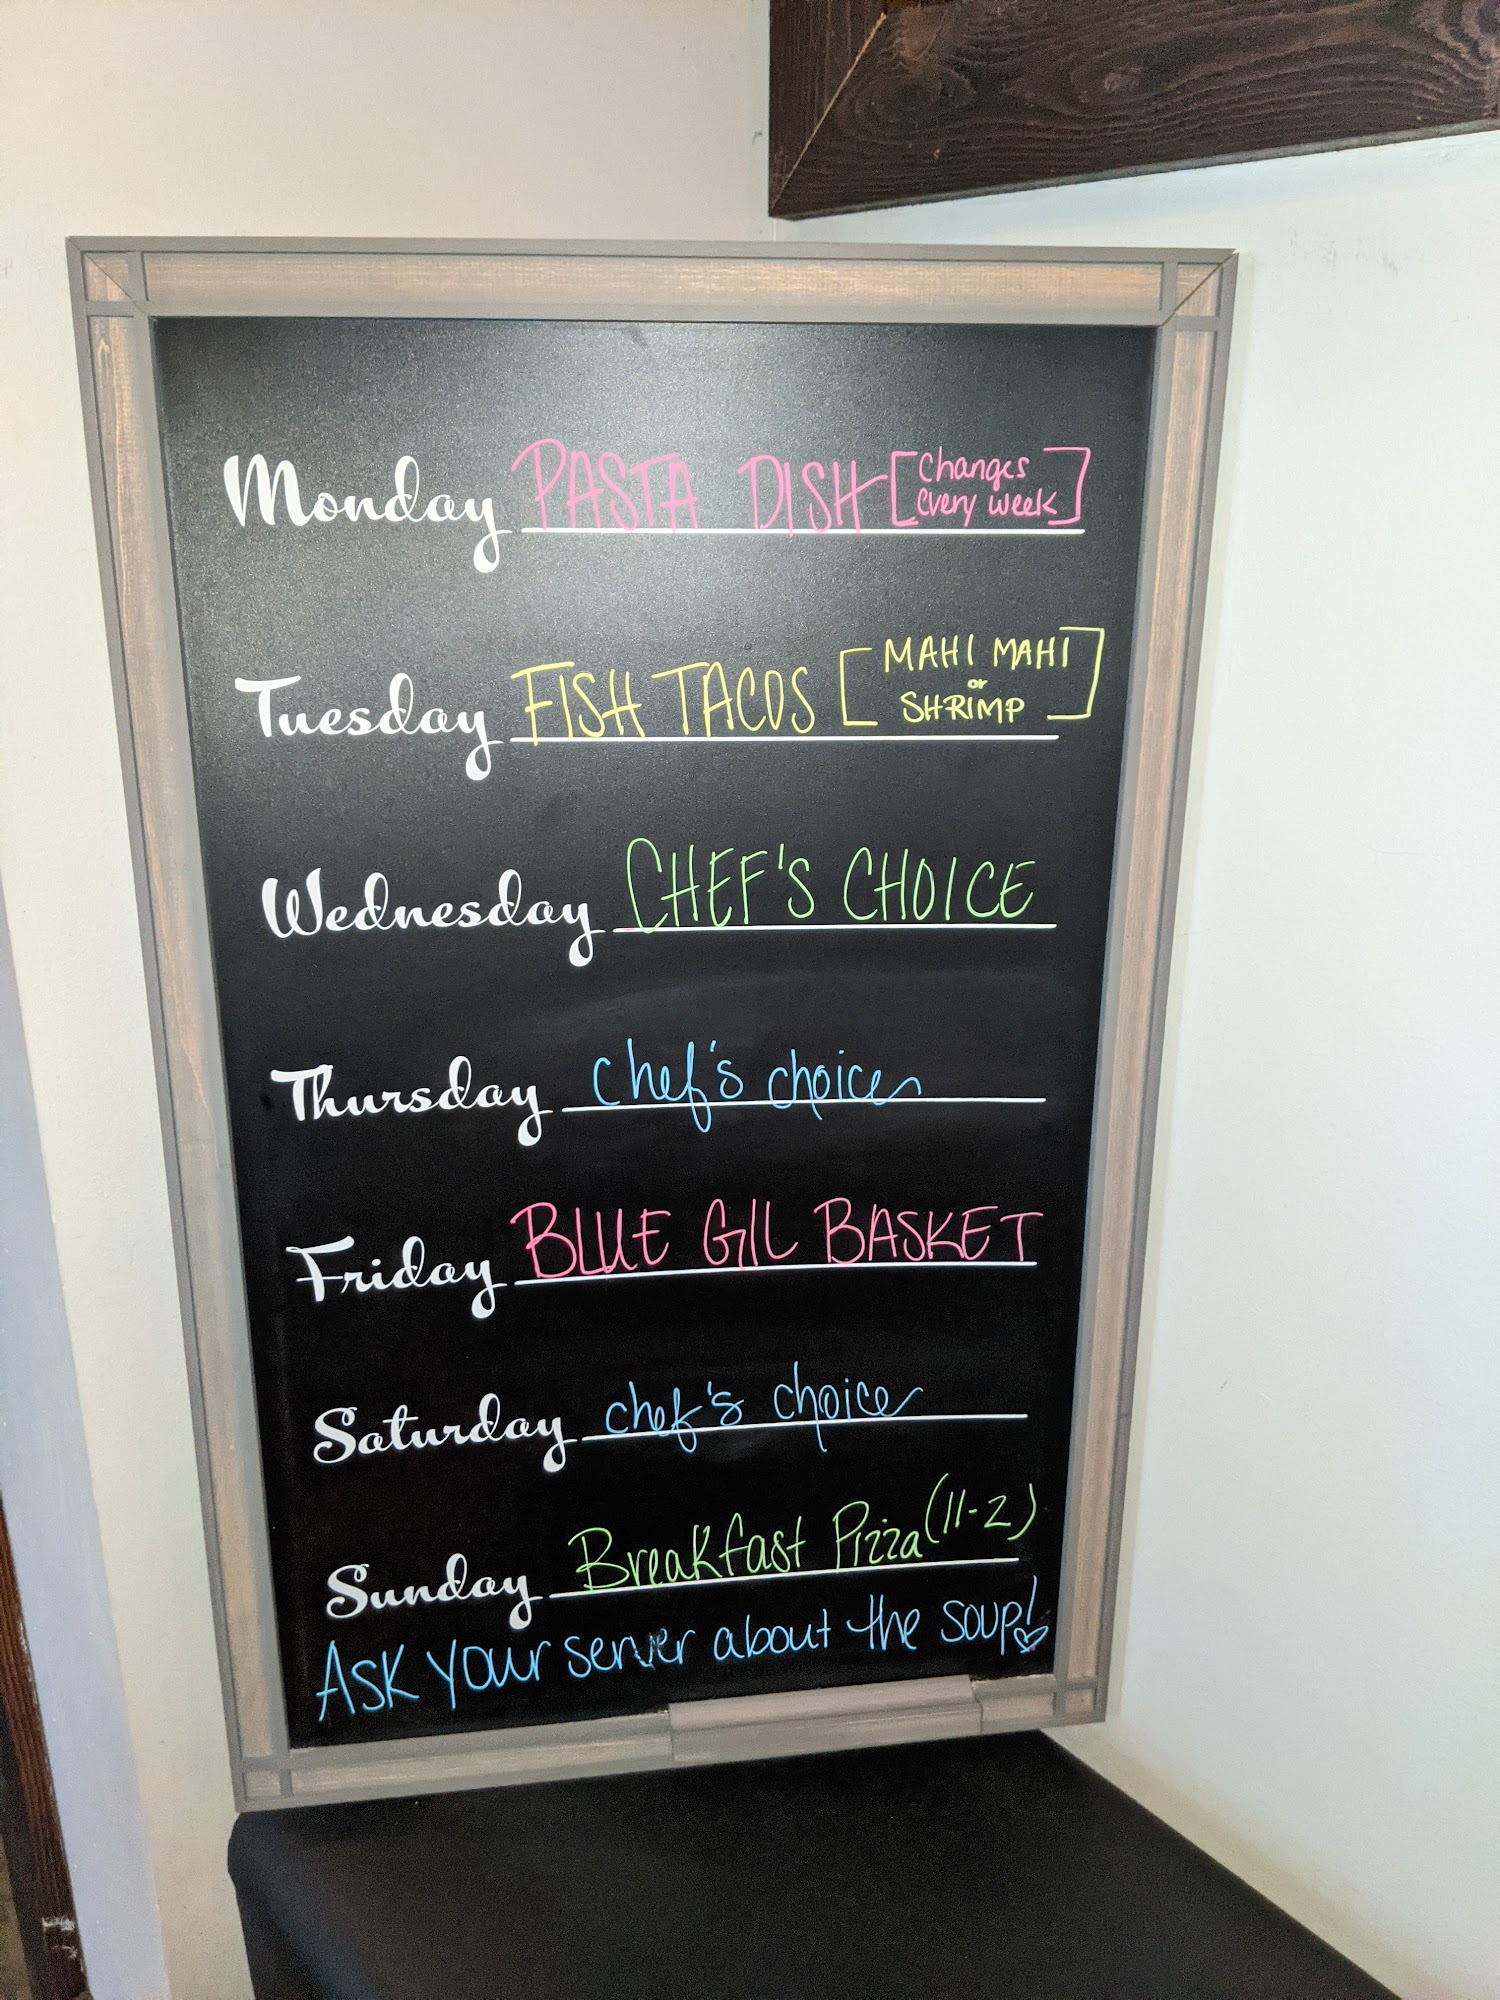 Monday PASTA DISH [Changes every week]
Tuesday FISH TACOS [MAHI MAHI or SHRIMP]
Wednesday CHEF'S CHOICE
Thursday chef's choice
Friday BLUE GIL BASKET
Saturday chef's choice
Sunday Breakfast Pizza (11-2)
ASK your server about the soup!